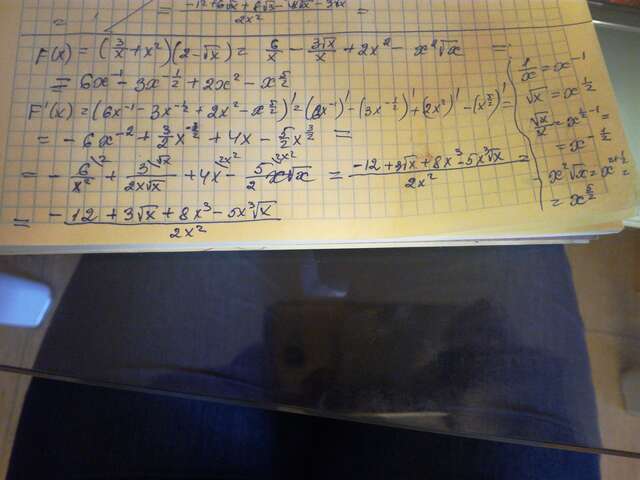 F(x) = (3/x + x²)(2 - √x) = 6/x - 3√x/x + 2x² - x²√x =
= 6x⁻¹ - 3x^(-1/2) + 2x² - x^(5/2)
F'(x) = (6x⁻¹ - 3x^(-1/2) + 2x² - x^(5/2))' = (6x⁻¹)' - (3x^(-1/2))' + (2x²)' - (x^(5/2))' =
= -6x⁻² + 3/2 x^(-3/2) + 4x - 5/2 x^(3/2) =
= - 6/x² + 3/(2x√x) + 4x - 5/2 x√x = (-12 + 3√x + 8x³ - 5x³√x)/(2x²) =
= (-12 + 3√x + 8x³ - 5x³√x)/(2x²)
1/x = x⁻¹
√x = x^(1/2)
√x/x = x^(1/2 - 1) =
= x^(-1/2)
x²√x = x^(2+1/2) =
= x^(5/2)